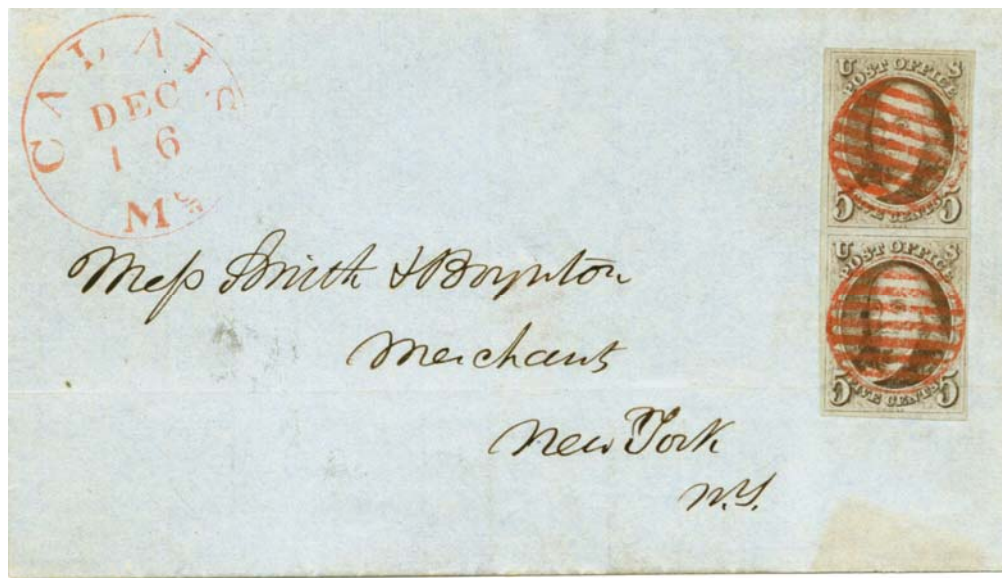 CALAIS
DEC
16
Me
U S
POST OFFICE
FIVE CENTS
5 5
U S
POST OFFICE
FIVE CENTS
5 5
Mess Smith & Boynton
Merchants
New York
N.Y.